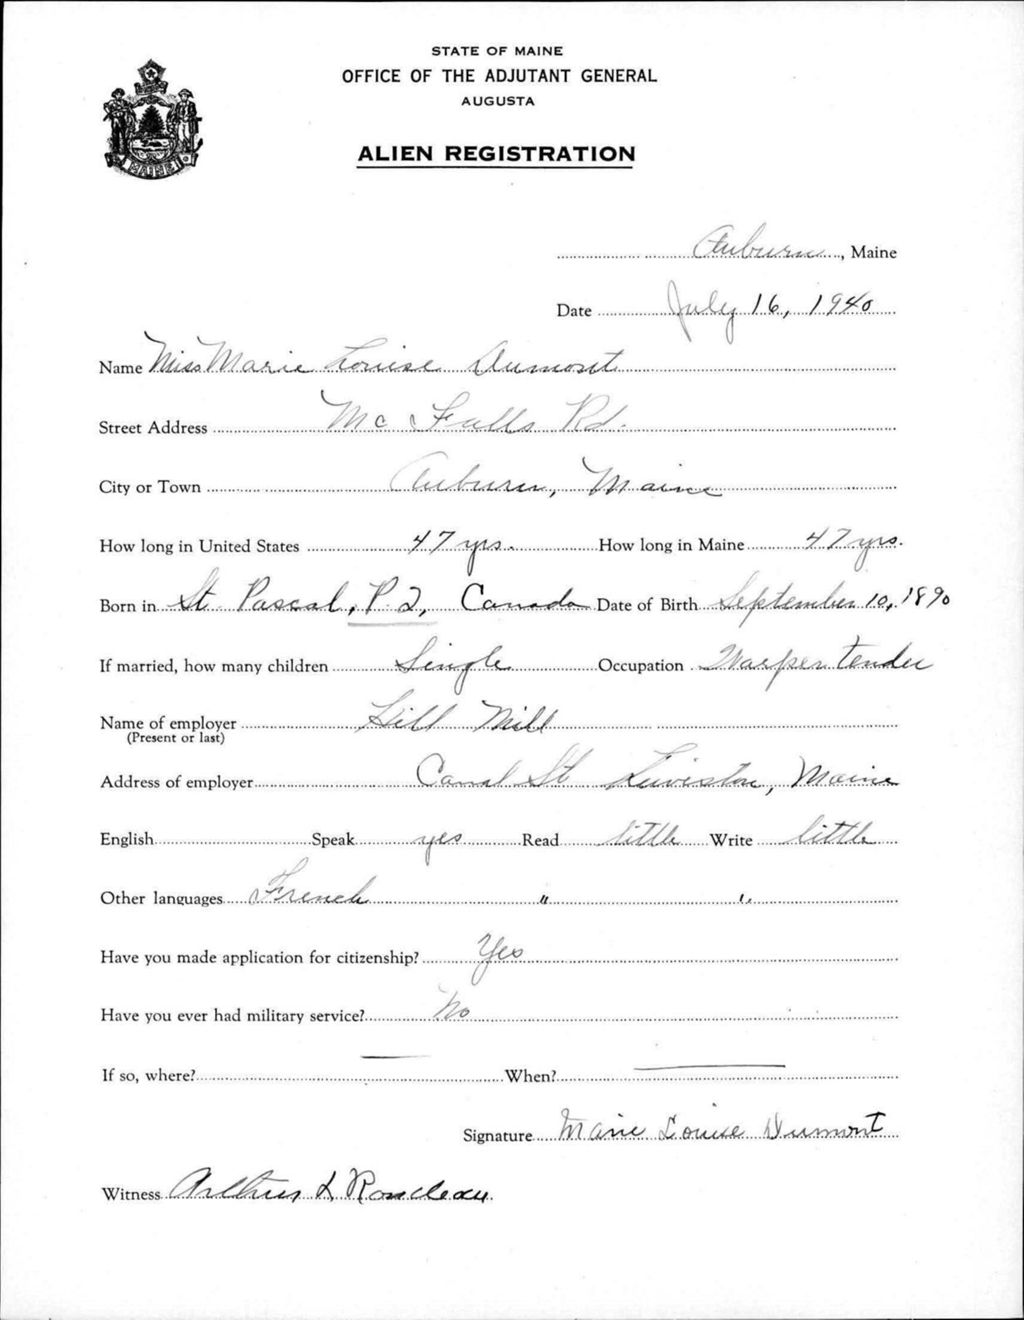 STATE OF MAINE
OFFICE OF THE ADJUTANT GENERAL
AUGUSTA
ALIEN REGISTRATION
MAINE
Auburn, Maine
Date July 16, 1940
Name Miss Marie Louise Dumont
Street Address Mc Falls Rd.
City or Town Auburn, Maine
How long in United States 47 yrs. How long in Maine 47 yrs.
Born in St Pascal, P.Q, Canada Date of Birth September 10, 1890
If married, how many children Single Occupation Warper tender
Name of employer Hill Mill
(Present or last)
Address of employer Canal St Lewiston, Maine
English Speak yes Read little Write little
Other languages French " "
Have you made application for citizenship? Yes
Have you ever had military service? No
If so, where? — When? —
Signature Marie Louise Dumont
Witness Arthur L Rondeau